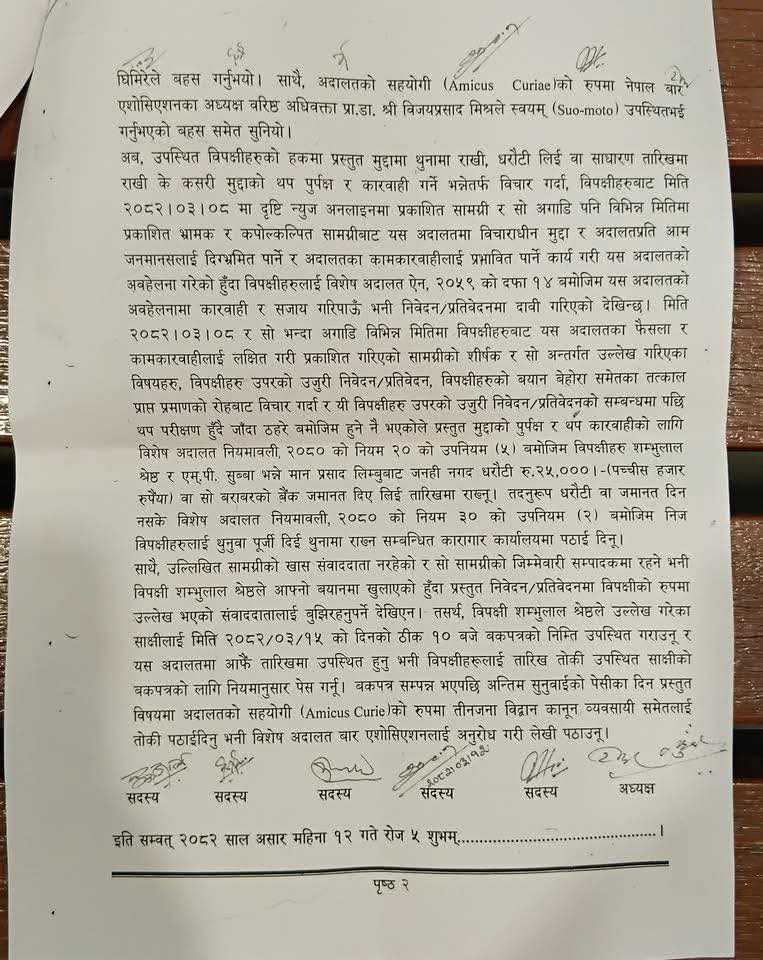 घिमिरेले बहस गर्नुभयो। साथै, अदालतको सहयोगी (Amicus Curiae)को रुपमा नेपाल बार
एशोसिएशनका अध्यक्ष वरिष्ठ अधिवक्ता प्रा.डा. श्री विजयप्रसाद मिश्रले स्वयम् (Suo-moto) उपस्थितभई
गर्नुभएको बहस समेत सुनियो।
अब, उपस्थित विपक्षीहरुको हकमा प्रस्तुत मुद्दामा थुनामा राखी, धरौटी लिई वा साधारण तारिखमा
राखी के कसरी मुद्दाको थप पुर्पक्ष र कारवाही गर्ने भन्नेतर्फ विचार गर्दा, विपक्षीहरुबाट मिति
२०८२।०३।०८ मा दृष्टि न्युज अनलाइनमा प्रकाशित सामग्री र सो अगाडि पनि विभिन्न मितिमा
प्रकाशित भ्रामक र कपोलकल्पित सामग्रीबाट यस अदालतमा विचाराधीन मुद्दा र अदालतप्रति आम
जनमानसलाई दिग्भ्रमित पार्ने र अदालतका कामकारवाहीलाई प्रभावित पार्ने कार्य गरी यस अदालतको
अवहेलना गरेको हुँदा विपक्षीहरुलाई विशेष अदालत ऐन, २०५९ को दफा १४ बमोजिम यस अदालतको
अवहेलनामा कारवाही र सजाय गरिपाऊँ भनी निवेदन/प्रतिवेदनमा दावी गरिएको देखिन्छ। मिति
२०८२।०३।०८ र सो भन्दा अगाडि विभिन्न मितिमा विपक्षीहरुबाट यस अदालतका फैसला र
कामकारवाहीलाई लक्षित गरी प्रकाशित गरिएको सामग्रीको शीर्षक र सो अन्तर्गत उल्लेख गरिएका
विषयहरु, विपक्षीहरु उपरको उजुरी निवेदन/प्रतिवेदन, विपक्षीहरुको बयान बेहोरा समेतका तत्काल
प्राप्त प्रमाणको रोहबाट विचार गर्दा र यी विपक्षीहरु उपरको उजुरी निवेदन/प्रतिवेदनको सम्बन्धमा पछि
थप परीक्षण हुँदै जाँदा ठहरे बमोजिम हुने नै भएकोले प्रस्तुत मुद्दाको पुर्पक्ष र थप कारवाहीको लागि
विशेष अदालत नियमावली, २०८० को नियम २० को उपनियम (५) बमोजिम विपक्षीहरु शम्भुलाल
श्रेष्ठ र एम्.पी. सुब्बा भन्ने मान प्रसाद लिम्बुबाट जनही नगद धरौटी रु.२५,०००।-(पच्चीस हजार
रुपैंया) वा सो बराबरको बैंक जमानत दिए लिई तारिखमा राख्नू। तदनुरूप धरौटी वा जमानत दिन
नसके विशेष अदालत नियमावली, २०८० को नियम ३० को उपनियम (२) बमोजिम निज
विपक्षीहरुलाई थुनुवा पूर्जी दिई थुनामा राख्न सम्वन्धित कारागार कार्यालयमा पठाई दिनू।
साथै, उल्लिखित सामग्रीको खास संवाददाता नरहेको र सो सामग्रीको जिम्मेवारी सम्पादकमा रहने भनी
विपक्षी शम्भुलाल श्रेष्ठले आफ्नो बयानमा खुलाएको हुँदा प्रस्तुत निवेदन/प्रतिवेदनमा विपक्षीको रुपमा
उल्लेख भएको संवाददातालाई बुझिरहनुपर्ने देखिएन। तसर्थ, विपक्षी शम्भुलाल श्रेष्ठले उल्लेख गरेका
साक्षीलाई मिति २०८२/०३/१५ को दिनको ठीक १० बजे बकपत्रको निम्ति उपस्थित गराउनू र
यस अदालतमा आफैँ तारिखमा उपस्थित हुनु भनी विपक्षीहरूलाई तारिख तोकी उपस्थित साक्षीको
बकपत्रको लागि नियमानुसार पेस गर्नू। बकपत्र सम्पन्न भएपछि अन्तिम सुनुवाईको पेसीका दिन प्रस्तुत
विषयमा अदालतको सहयोगी (Amicus Curie)को रुपमा तीनजना विद्वान कानून व्यवसायी समेतलाई
तोकी पठाईदिनु भनी विशेष अदालत बार एशोसिएशनलाई अनुरोध गरी लेखी पठाउनू।
२०८२।०३।१२
सदस्य सदस्य सदस्य सदस्य सदस्य अध्यक्ष
इति सम्वत् २०८२ साल असार महिना १२ गते रोज ५ शुभम्..................................................।
पृष्ठ २